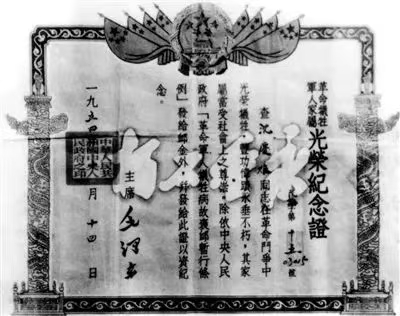 革命犧牲
軍人家屬
光榮紀念證
字第
號
查沈同志在革命鬥爭中
光榮犧牲，豐功偉績永垂不朽，其家
屬當受社會上之尊崇。除依中央人民
政府「革命軍人犧牲病故褒恤暫行條
例」發給卹金外，并發給此證以資紀
念。
主席 毛澤東
一九五四 月十四日